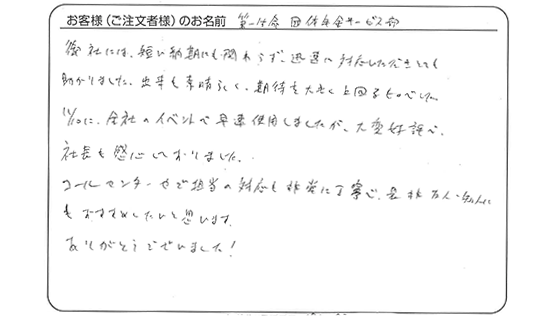 お客様（ご注文者様）のお名前 第一生命 団体年金サービス部
御社には、短い納期にも関わらず、迅速に対応していただきとても
助かりました。出来も素晴らしく、期待を大きく上回るものでした。
11/10に、会社のイベントで早速使用しましたが、大変好評で、
社長も感心しておりました。
コールセンターやご担当の対応も非常に丁寧で、是非友人・知人に
もおすすめしたいと思います。
ありがとうございました！